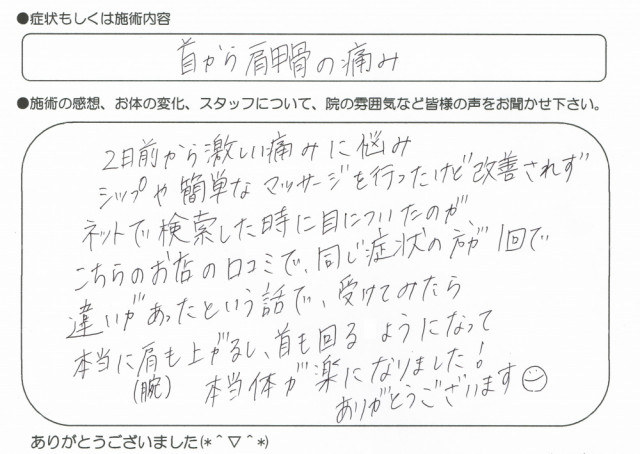 ●症状もしくは施術内容
首から肩甲骨の痛み
●施術の感想、お体の変化、スタッフについて、院の雰囲気など皆様の声をお聞かせ下さい。
2日前から激しい痛みに悩み
シップや簡単なマッサージを行ったけど改善されず
ネットで検索した時に目についたのが、
こちらのお店の口コミで、同じ症状の方が1回で
違いがあったという話で、受けてみたら
本当に肩も上がるし、首も回るようになって
(腕) 本当体が楽になりました!
ありがとうございます
ありがとうございました(*^▽^*)